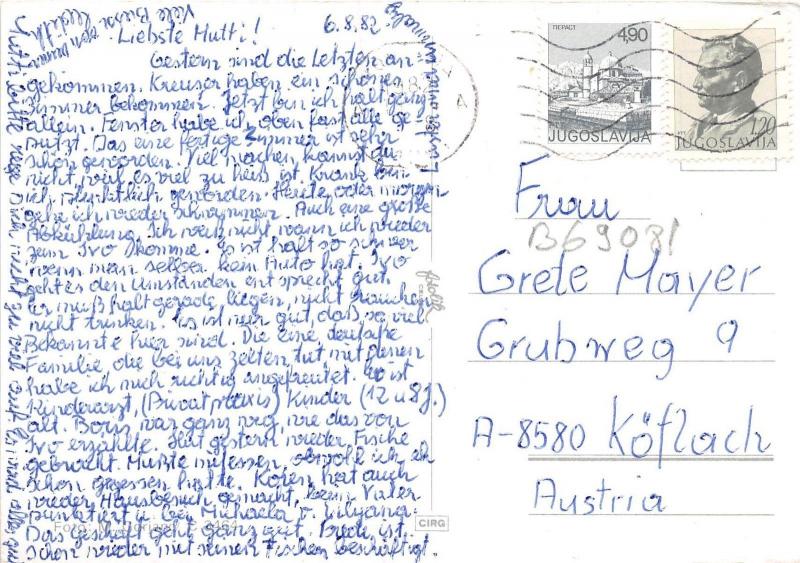 6.8.82
Liebste Mutti!
Gestern sind die Letzten an-
gekommen. Kreuser haben ein schönes
Zimmer bekommen. Jetzt bin ich halt ganz
allein. Fenster habe ich oben fast alle ge-
putzt. Das eine fertige Zimmer ist sehr
schön geworden. Viel machen kannst du
nicht weil es viel zu heiss ist. Krank bin
ich geworden. Heute oder morgen
gehe ich wieder schwimmen. Auch eine große
Abkühlung. Ich weiß nicht wann ich wieder
zum Ivo komme. Es ist halt so schwer
wenn man selber kein Auto hat. Ivo
geht es den Umständen entsprecht gut.
Er muß halt gerade liegen, nicht rauchen
nicht trinken. Es ist nur gut, daß so viel
Bekannte hier sind. Die eine, deutsche
Familie, die bei uns zelten tut mit denen
habe ich mich richtig angefreutet. Er ist
Kinderarzt, (Privatpraxis) Kinder (12 u 8 J.)
alt. Boris war ganz weg, wie das von
Ivo erzählte. Hat gestern wieder Fische
gebracht. Mußte mitessen, obwohl ich eh
schon gegessen hatte. Koren hat auch
wieder Hausbesuch gemacht, beim Vater
punktiert u. bei Michaela u. Liljana.
Das Geschäft geht ganz gut. ist
schon wieder mit seinen Fischen beschäftigt.
Mutti bitte rege Dich nicht auf es wird alles gut
Viele Bussi
4,90
ПЕРАСТ
JUGOSLAVIJA
1.20
JUGOSLAVIJA
Frau
B69081
Grete Mayer
Grubweg 9
A-8580 Köflach
Austria
Foto:
3464
CIRG